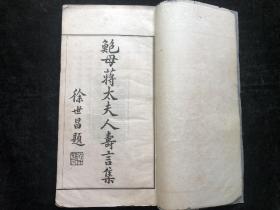 鮑母蔣太夫人壽言集
徐世昌題